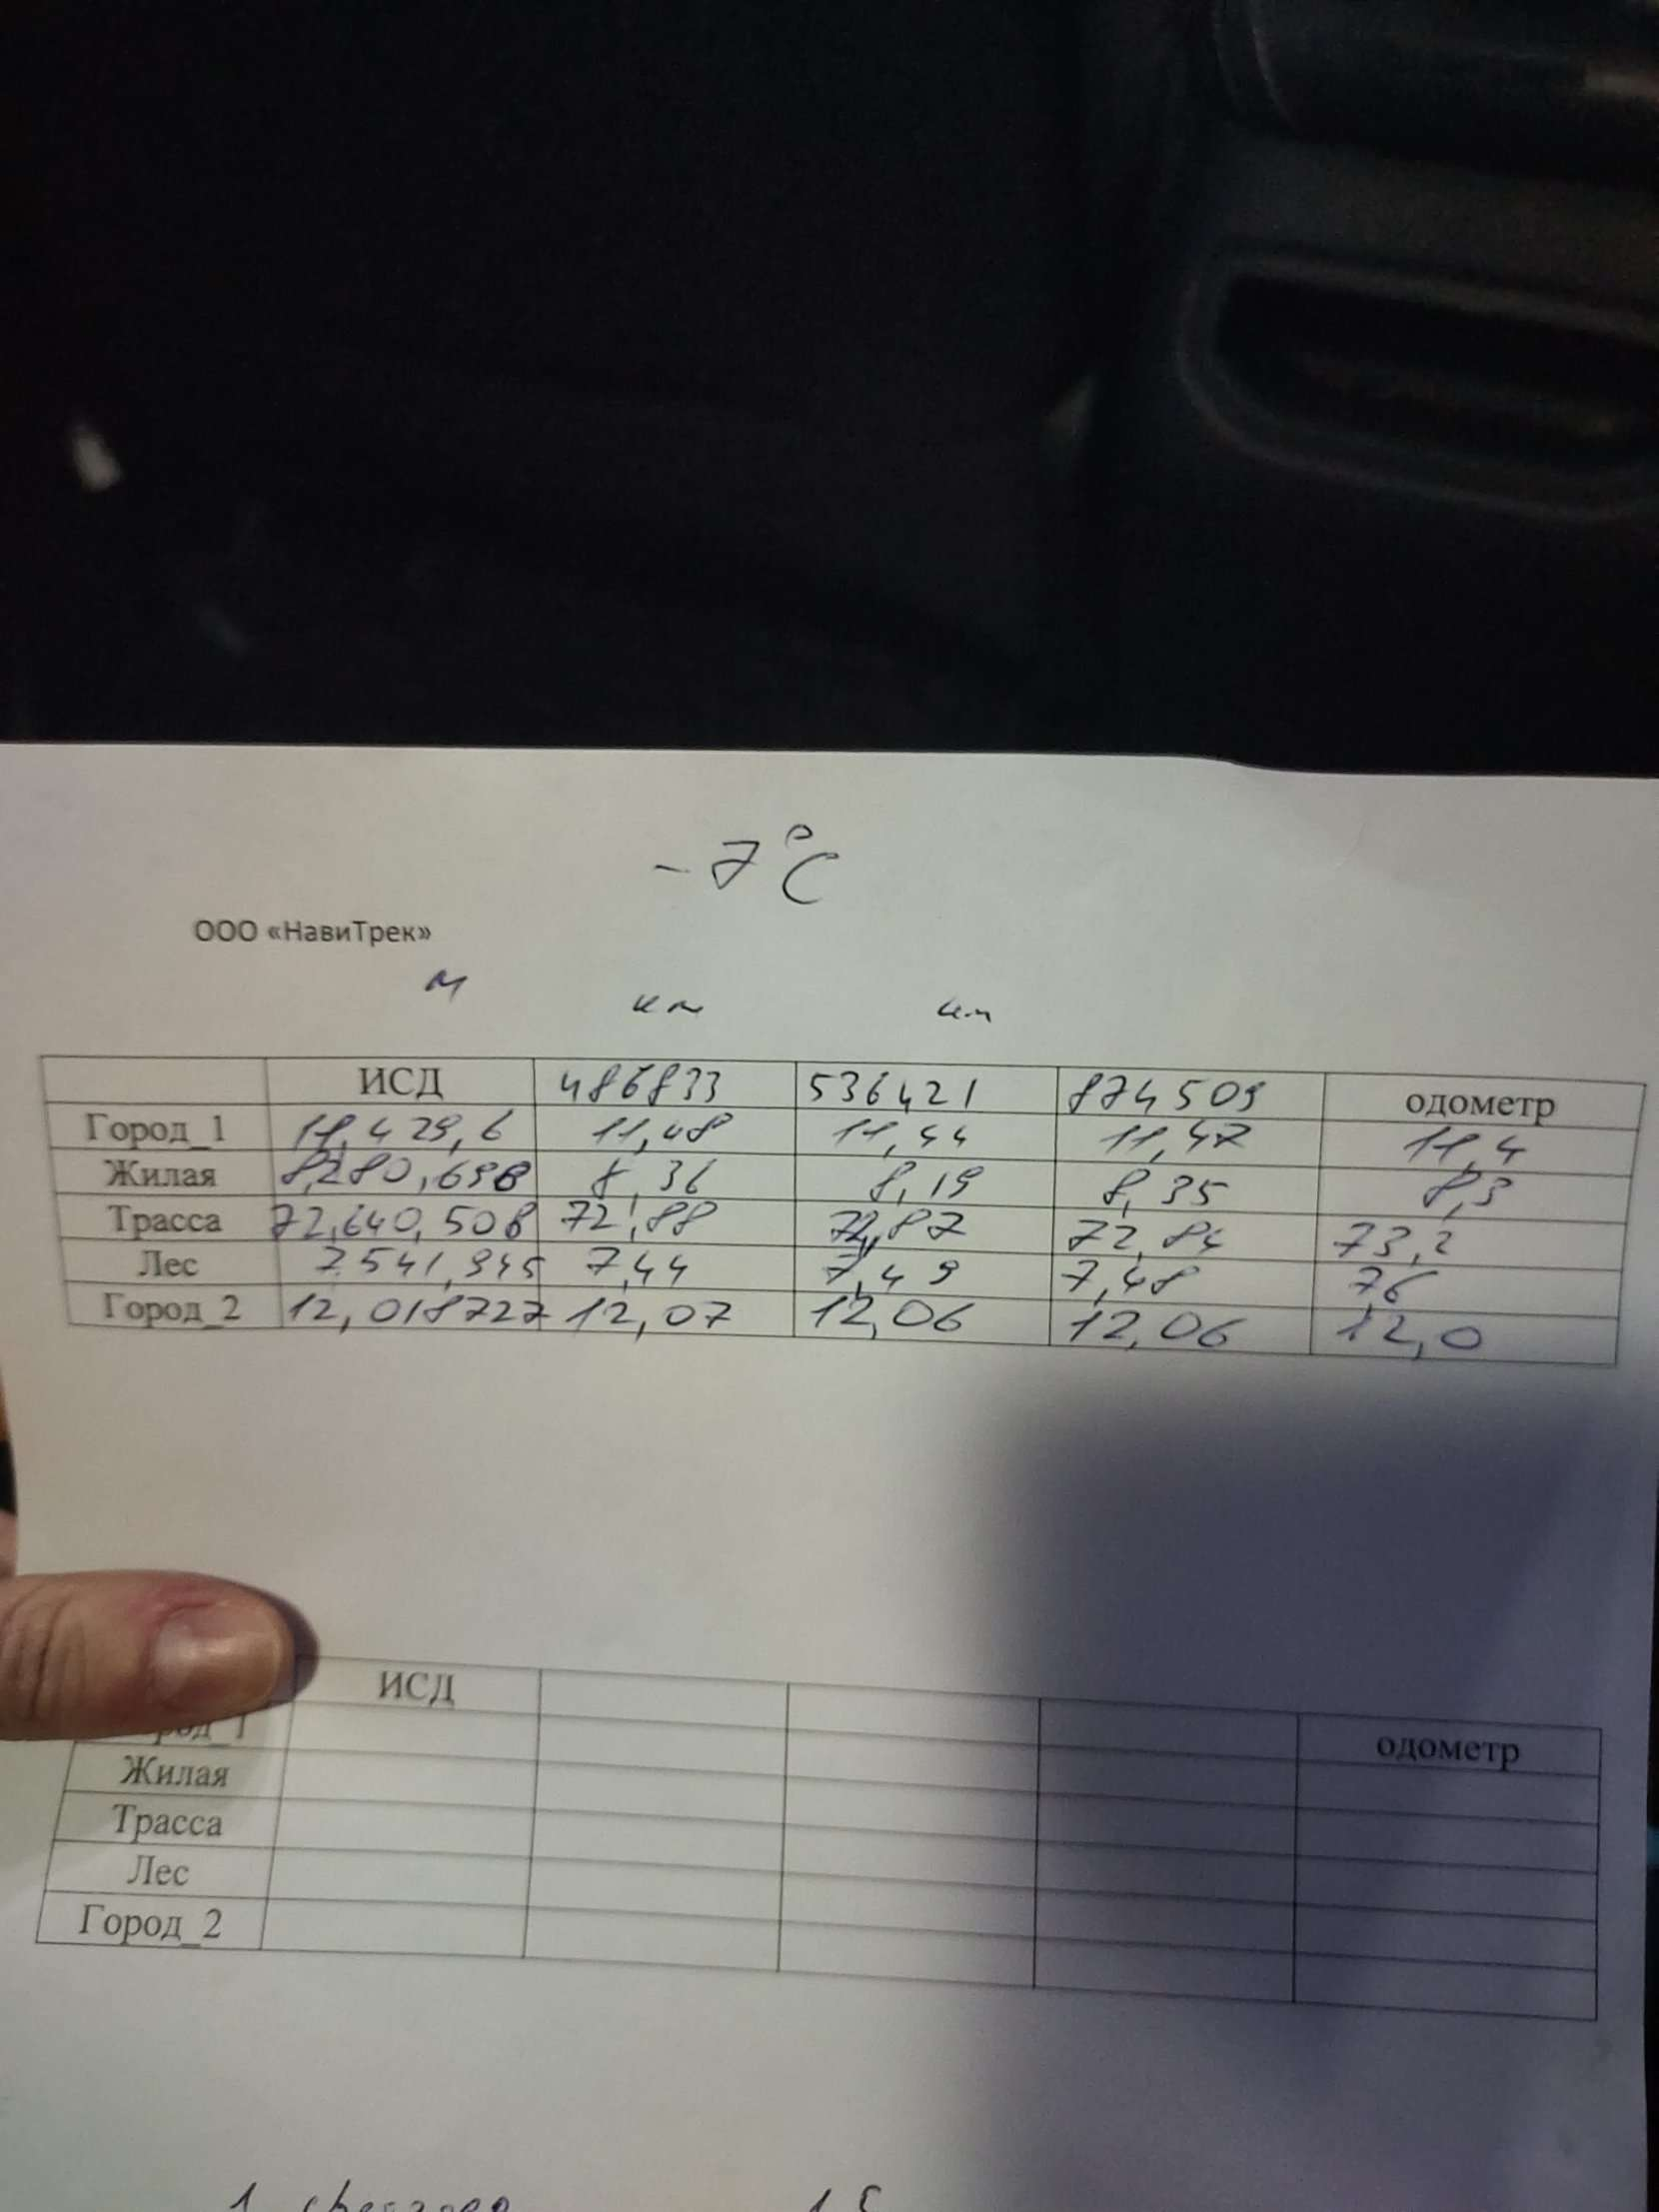 -7°C
ООО «НавиТрек»
м км км
ИСД 486833 536421 874509 одометр
Город_1 11,429,6 11,48 11,44 11,47 11,4
Жилая 8,280,698 8,36 8,19 8,35 8,3
Трасса 72,640,508 72,88 72,87 72,84 73,2
Лес 7541,945 7,44 7,49 7,48 7,6
Город_2 12,018727 12,07 12,06 12,06 12,0
ИСД одометр
Жилая
Трасса
Лес
Город_2